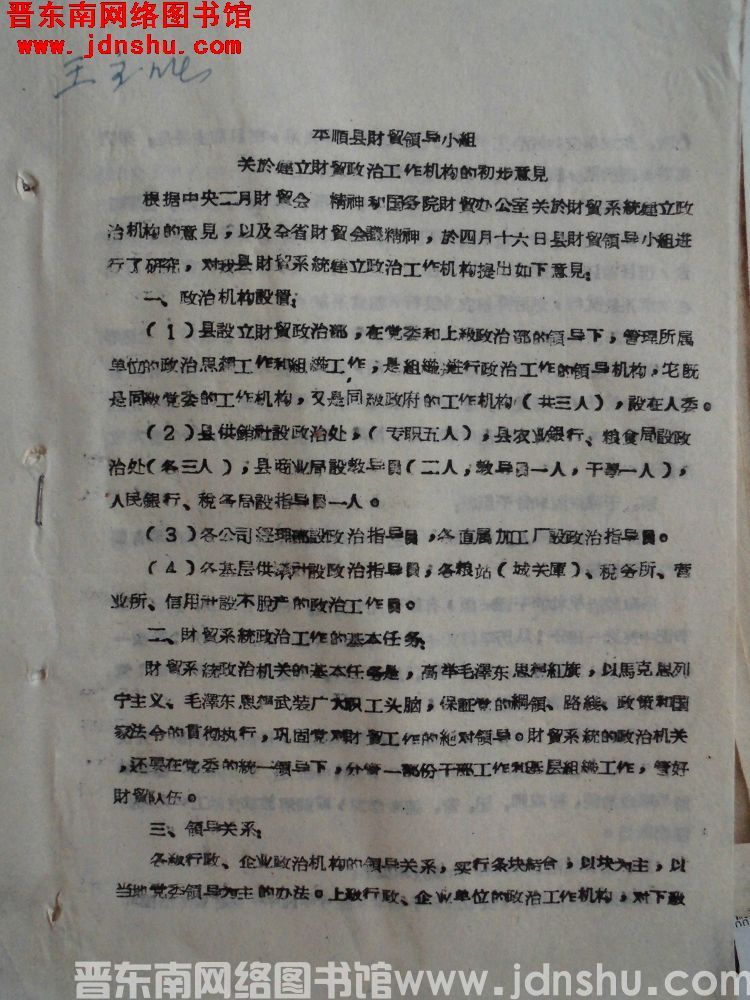 晋东南网络图书馆
www.jdnshu.com
平順县財貿領导小組
关於建立財貿政治工作机构的初步意見
根据中央二月財貿会 精神和国务院財貿办公室关於財貿系統建立政
治机构的意見，以及全省財貿会議精神，於四月十六日县財貿領导小組进
行了研究，对我县財貿系統建立政治工作机构提出如下意見：
一、政治机构設置：
（1）县設立財貿政治部，在党委和上級政治部的領导下，管理所属
单位的政治思想工作和組織工作，是組織进行政治工作的領导机构，它既
是同級党委的工作机构，又是同級政府的工作机构（共三人），設在人委。
（2）县供銷社設政治处，（专职五人），县农业銀行、粮食局設政
治处（各三人），县商业局設教导員（二人，教导員一人，干事一人），
人民銀行、稅务局設指导員一人。
（3）各公司經理部設政治指导員，各直属加工厂設政治指导員。
（4）各基层供銷社設政治指导員，各粮站（城关庫）、稅务所、营
业所、信用社設不脫产的政治工作員。
二、財貿系統政治工作的基本任务：
財貿系統政治机关的基本任务是，高举毛澤东思想紅旗，以馬克思列
宁主义、毛澤东思想武装广大职工头脑，保証党的綱領、路綫、政策和国
家法令的貫彻执行，巩固党对財貿工作的絕对領导。財貿系統的政治机关
，还要在党委的統一領导下，分管一部份干部工作和基层組織工作，管好
財貿队伍。
三、領导关系：
各級行政、企业政治机构的領导关系，实行条块結合，以块为主，以
当地党委領导为主的办法。上級行政、企业单位的政治工作机构，对下級
晋东南网络图书馆www.jdnshu.com